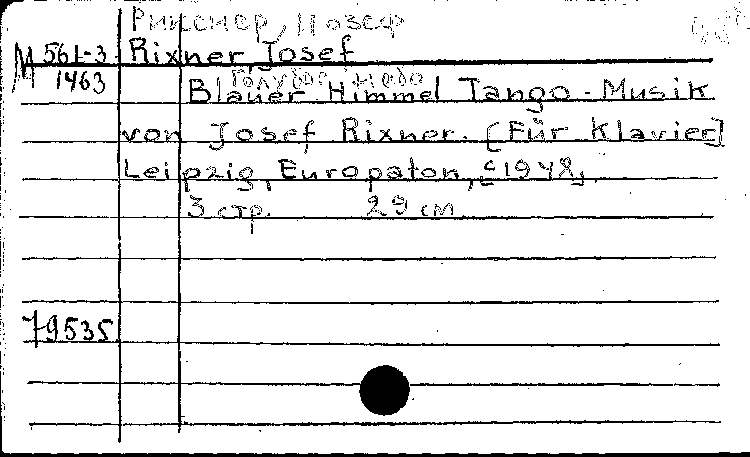 Рикснер, Иозеф
М 561-3 Rixner, Josef
1463
Голубое небо
Blauer Himmel Tango-Musik
von Josef Rixner. [Für Klavier]
Leipzig, Europaton,
3 стр. 29 см
79535